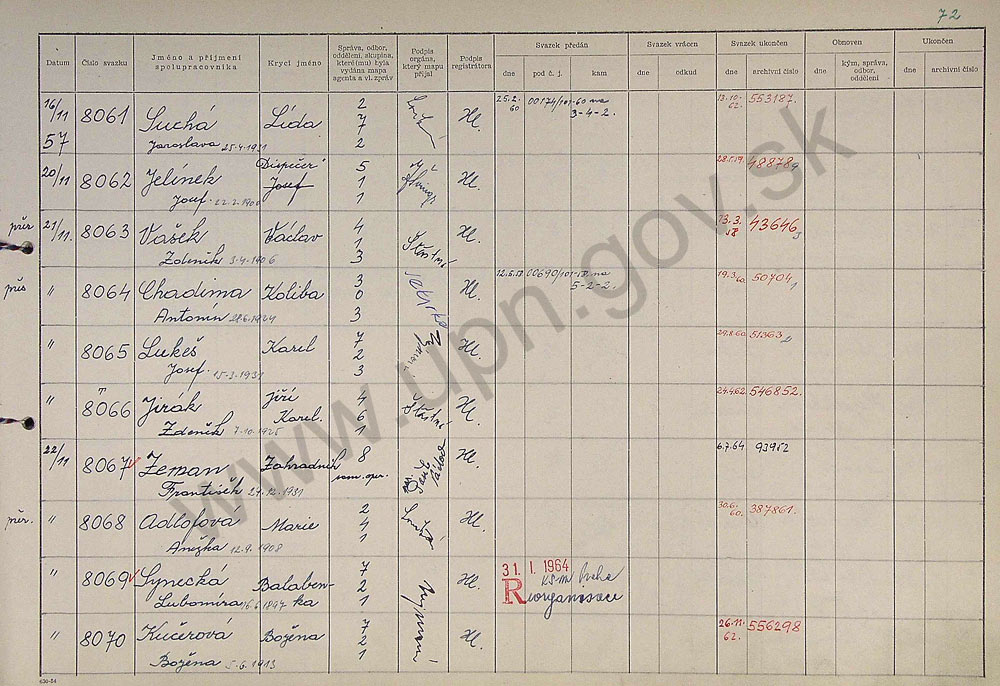 72
Datum
Číslo svazku
Jméno a příjmení spolupracovníka
Krycí jméno
Správa, odbor, oddělení, skupina, které(mu) byla vydána mapa agenta a vl. zpráv
Podpis orgána, který mapu přijal
Podpis registrátora
Svazek předán
dne
pod č. j.
kam
Svazek vrácen
dne
odkud
Svazek ukončen
dne
archivní číslo
Obnoven
dne
kým, správa, odbor, oddělení
Ukončen
dne
archivní číslo
16/11 57 8061 Suchá Lída 2 7 2 Hl. 25.2. 60 00174/101-60 na 3-4-2. 13.10. 62. 553187.
Jaroslava 25.4.1931
20/11 8062 Jelínek Dispečer Josef 5 1 1 Hl. 48878
Josef. 22.2.1900
21/11. 8063 Vašek Václav 4 1 3 Šťastný Hl. 13.3. 58 43646
Zdeněk 3.4.1906
" 8064 Chadima Koliba 3 0 3 Hl. 00690/101-58 na 5-2-2. 19.3. 60 50404
Antonín 28.6.1924
" 8065 Lukeš Karel 7 2 3 Hl. 29.8.60 51363
Josef. 15.3.1931
" 8066 Jirák Jiří Karel. 4 6 1 Šťastný Hl. 24.4.62. 546852.
Zdeněk 7.10.1925
22/11 8067 Zeman Zahradník 8 Hl. 6.7.64 93952
František 24.12.1931
přer. " 8068 Adlofova Marie 2 4 1 Hl. 30.6. 60. 387861.
Anežka 12.9.1908
" 8069 Synecká Balabenka 7 2 1 Hl. 31. I. 1964 KS-MV Praha
Lubomíra 16.6.1897 Reorganisace
" 8070 Kučerová Božena 7 2 1 Hl. 26.11. 62. 556298
Božena 5.6.1913
630-54
www.upn.gov.sk